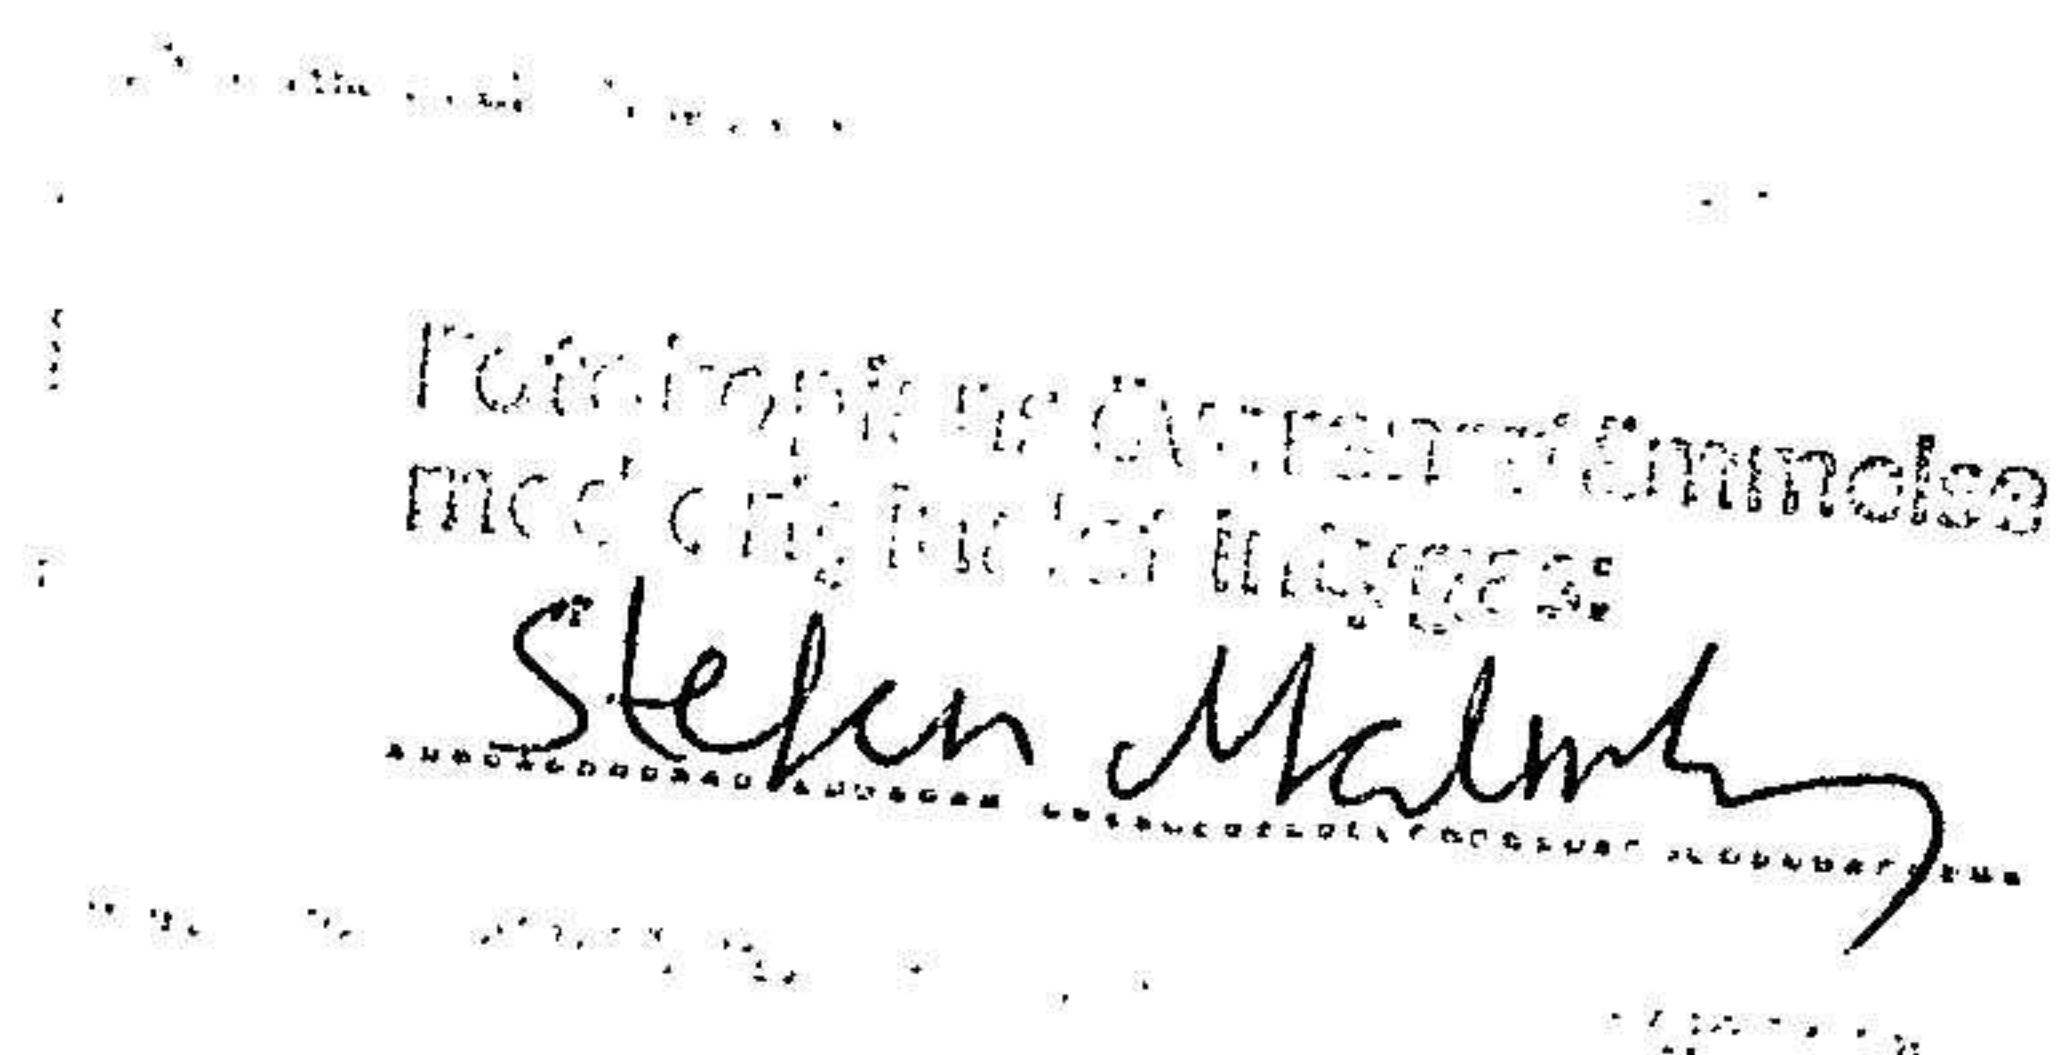 Fotokopians överensstämmelse
med originalet intygas:
Stefan